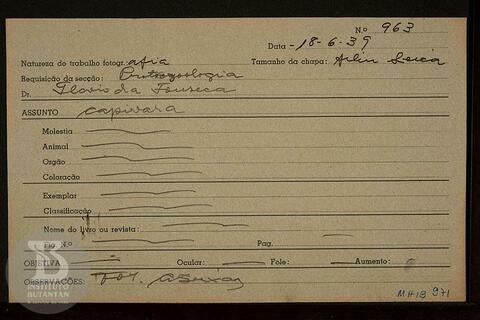 N.o 963
Data - 18-6-39
Natureza do trabalho fotogr. afia Tamanho da chapa: Film Leica
Requisição da secção: Protozoologia
Dr. Flavio da Fonseca
ASSUNTO capivara
Molestia
Animal
Orgão
Coloração
Exemplar
Classificação
Nome do livro ou revista:
Fig. N.o Pag.
OBJETIVA Ocular: Fole: Aumento:
OBSERVAÇÕES: Fot.
INSTITUTO
BUTANTAN
MHIB 971